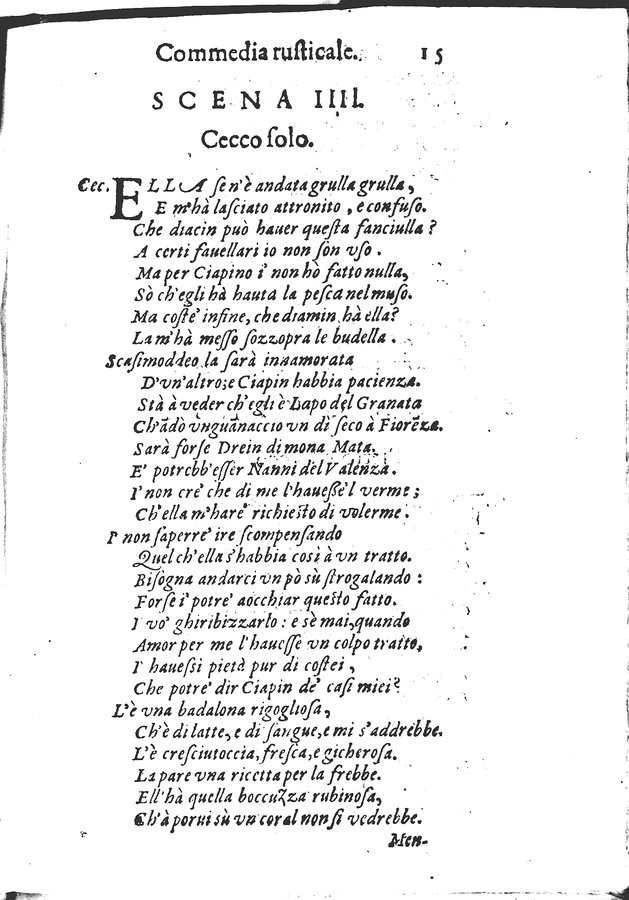 Commedia rusticale. 15
SCENA IIII.
Cecco solo.
Cec. ELLA se n'è andata grulla grulla,
E m'hà lasciato attronito, e confuso.
Che diacin può hauer questa fanciulla?
A certi fauellari io non son vso.
Ma per Ciapino i' non hò fatto nulla,
Sò ch'egli hà hauta la pesca nel muso.
Ma coste' infine, che diamin hà ella?
La m'hà messo sozzopra le budella.
Scasimoddeo la sarà innamorata
D'vn'altro; e Ciapin habbia pacienza.
Stà à veder ch'egli è Lapo del Granata
Ch'ãdò vnguãnaccio vn dì seco à Fiorẽza.
Sarà forse Drein di mona Mata.
E' potrebb'esser Nanni del Valenza.
I' non cre' che di me l'hauesse'l verme;
Ch'ella m'hare' richiesto di volerme.
I' non saperre' ire scompensando
Quel ch'ella s'habbia così à vn tratto.
Bisogna andarci vn pò sù strogalando:
Forse i' potre' aocchiar questo fatto.
I vo' ghiribizzarlo: e sè mai, quando
Amor per me l'hauesse vn colpo tratto,
I' hauessi pietà pur di costei,
Che potre' dir Ciapin de' casi miei?
L'è vna badalona rigogliosa,
Ch'è di latte, e di sangue, e mi s'addrebbe.
L'è cresciutoccia, fresca, e gicherosa.
La pare vna ricetta per la frebbe.
Ell'hà quella boccuzza rubinosa,
Ch'à porui sù vn coral non si vedrebbe.
Men-